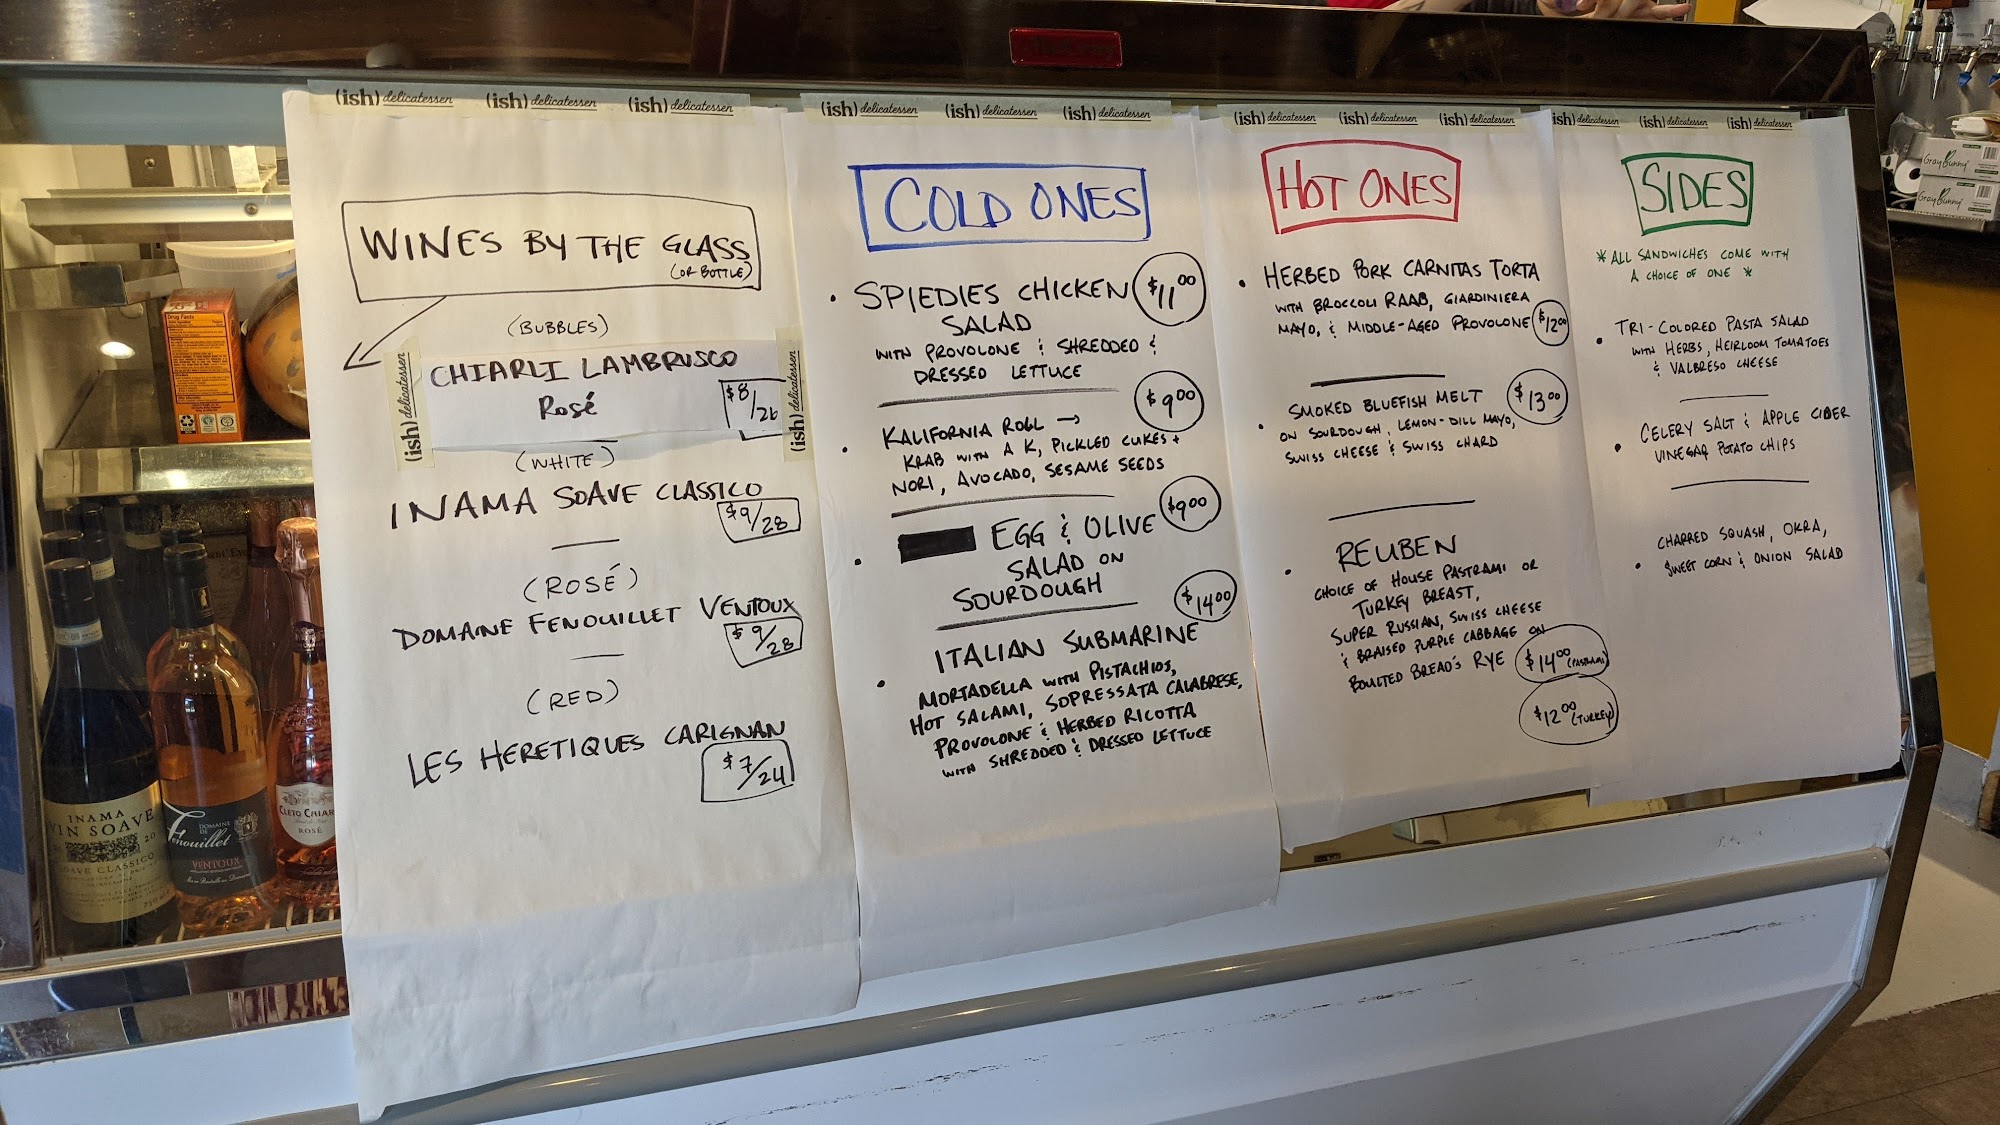 (ish) delicatessen (ish) delicatessen (ish) delicatessen
WINES BY THE GLASS
(OR BOTTLE)
(BUBBLES)
CHIARLI LAMBRUSCO
Rosé
$8/26
(ish) delicatessen
(ish) delicatessen
(WHITE)
INAMA SOAVE CLASSICO
$9/28
(ROSÉ)
DOMAINE FENOUILLET VENTOUX
$9/28
(RED)
LES HERETIQUES CARIGNAN
$7/24
(ish) delicatessen (ish) delicatessen (ish) delicatessen
COLD ONES
• SPIEDIES CHICKEN $11.00
SALAD
WITH PROVOLONE & SHREDDED &
DRESSED LETTUCE
$9.00
• KALIFORNIA ROLL →
KRAB WITH A K, PICKLED CUKES +
NORI, AVOCADO, SESAME SEEDS
• EGG & OLIVE $9.00
SALAD ON
SOURDOUGH
$14.00
• ITALIAN SUBMARINE
MORTADELLA WITH PISTACHIOS,
HOT SALAMI, SOPRESSATA CALABRESE,
PROVOLONE & HERBED RICOTTA
WITH SHREDDED & DRESSED LETTUCE
(ish) delicatessen (ish) delicatessen (ish) delicatessen
HOT ONES
• HERBED PORK CARNITAS TORTA
WITH BROCCOLI RAAB, GIARDINIERA
MAYO, & MIDDLE-AGED PROVOLONE $12.00
• SMOKED BLUEFISH MELT $13.00
ON SOURDOUGH, LEMON-DILL MAYO,
SWISS CHEESE & SWISS CHARD
• REUBEN
CHOICE OF HOUSE PASTRAMI OR
TURKEY BREAST,
SUPER RUSSIAN, SWISS CHEESE
& BRAISED PURPLE CABBAGE ON
BOULTED BREAD'S RYE $14.00 (PASTRAMI)
$12.00 (TURKEY)
(ish) delicatessen (ish) delicatessen (ish) delicatessen
SIDES
* ALL SANDWICHES COME WITH
A CHOICE OF ONE *
• TRI-COLORED PASTA SALAD
WITH HERBS, HEIRLOOM TOMATOES
& VALBRESO CHEESE
• CELERY SALT & APPLE CIDER
VINEGAR POTATO CHIPS
• CHARRED SQUASH, OKRA,
SWEET CORN & ONION SALAD
Drug Facts
INAMA
VIN SOAVE
SOAVE CLASSICO
DOMAINE DE
Fenouillet
VENTOUX
CLETO CHIAR
ROSÉ
GrayBunny
GrayBunny